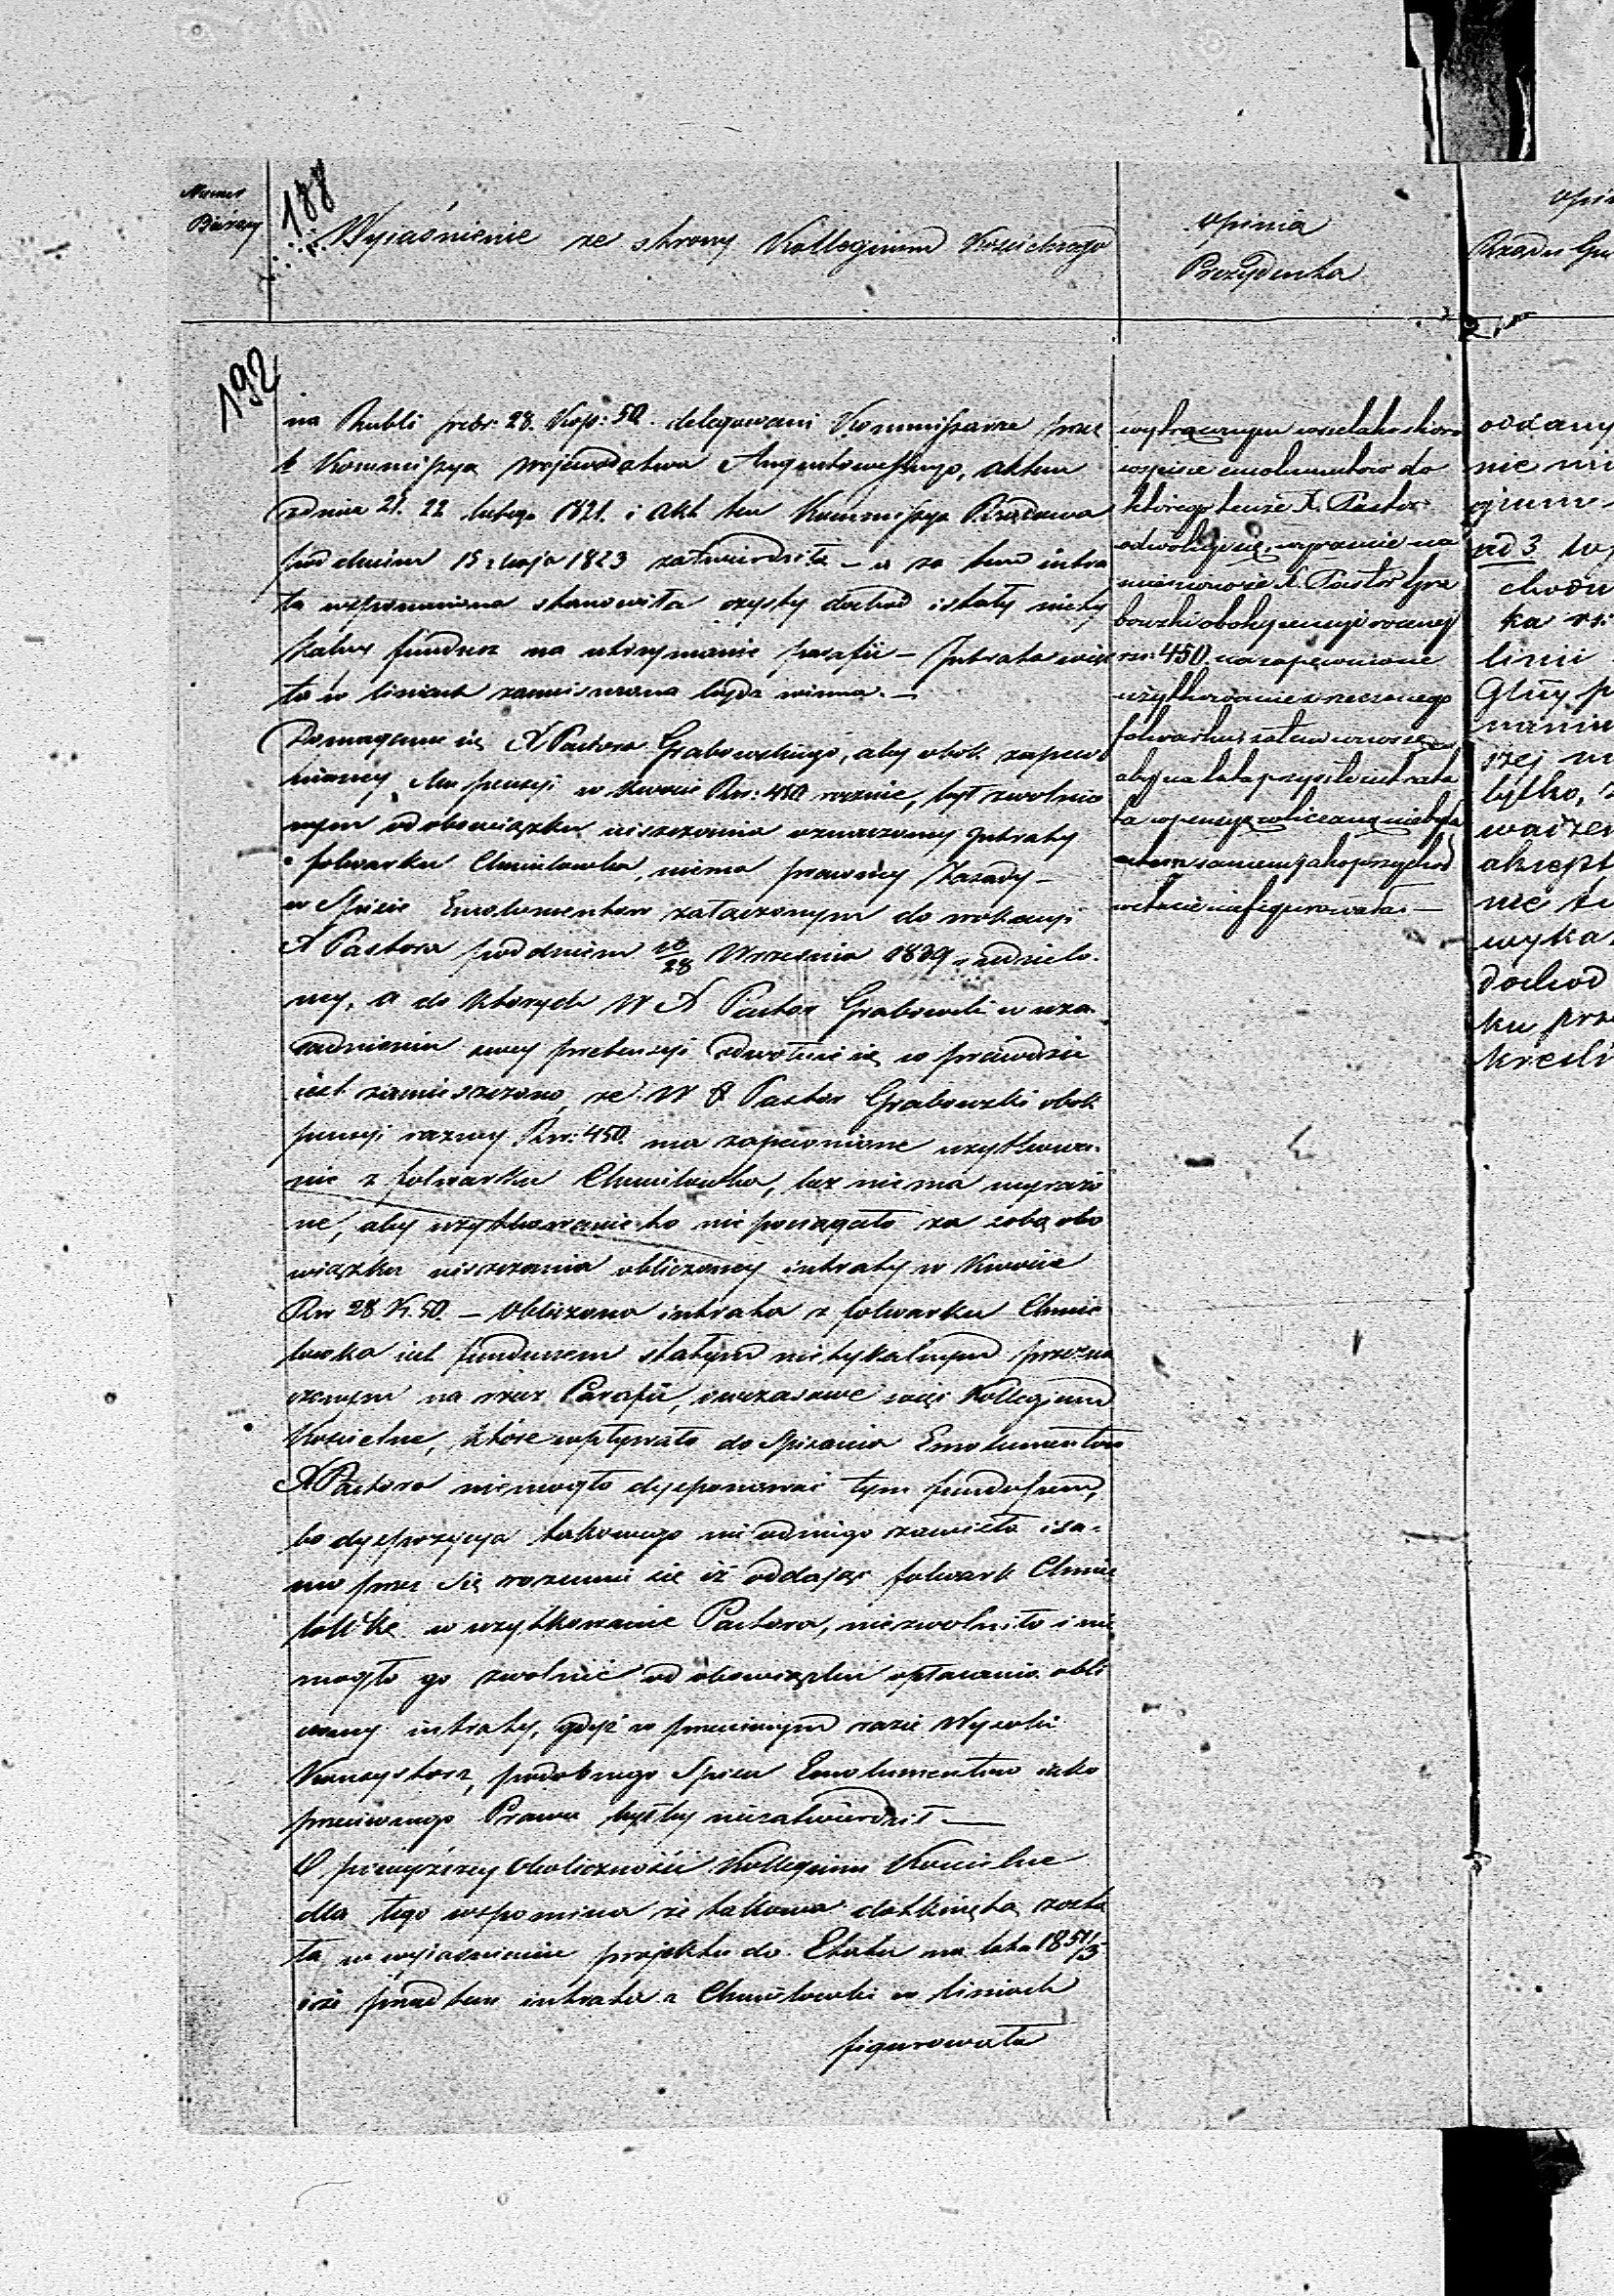 Numer
Bieżący
188
Wyjaśnienie ze strony Kollegium Kościelnego
Opinia
Prezydenta
Rządu Gu
192
na Rubli srebr: 28. Kop: 50. delegowani Kommissarze prze
z Kommissyą Wojewodztwa Augustowskiego, aktem
z dnia 21. 22 lutego 1821. i akt ten Kommissya Rządowa
pod dniem 15 Maja 1823 zatwierdziła – a za tem intra
ta wspomniona stanowiła czysty dochod i stały niety
kalny fundusz na utrzymanie parafii – Intrata więc
ta w liniach zamieszczona bydz winna. –
Domaganie się X Pastora Grabowskiego, aby obok zapew
nioney Mu pensyi w kwocie Rsr: 450 rocznie, był zwolnio
nym od obowiązku uiszczania oznaczoney Intraty
z folwarku Chmielówka, niema prawney Zasady –
w Spisie Emolumentow załączonym do wokacyi
X Pastora pod dniem 16/28 Września 1839 udzielo-
ney, a do ktorych W X Pastor Grabowski w uza-
sadnieniu swey pretensyi odwołuie się w prawdzie
iest zamieszczono, że W X Pastor Grabowski obok
pensyi roczney Rsr: 450. ma zapewnione uzytkowa-
nie z folwarku Chmielówka, lecz niema wyrażo
ne, aby uzytkowanie to nie pociągało za sobą obo
wiązku uiszczania obliczoney intraty w Kwocie
Rsr 28 K. 50. – Obliczona intrata z folwarku Chmie
lowka iest funduszem stałym nietykalnym przezna
czonym na rzecz Parafii, owczasowe więc Kollegium
Kościelne, które wpływało do Spisania Emolumentow
X Pastora niemogło dysponować tym funduszem,
bo dyspozycya takowego nie odniego zawisła i sa-
mo przez się rozumie się iż oddając folwark Chmie
lówkę w uzytkowanie Pastora, niezwolniło i nie
mogło go zwolnić od obowiązku opłacania obli
czoney intraty, gdyż w przeciwnym razie Wysoki
Konsystorz, podobnego Spisu Emolumentow iako
przeciwnego Prawu byłby niezatwierdził –
O powyższey Okoliczności Kollegium Kościelne
dla tego wspomina że takowa dotkniętą zosta
ła w wyjaśnieniu projektu do Etatu na lata 1851/3
iże przed tem intrata z Chmielówki w liniach
figurowała
wszelako skoro
wspisie emolumentow do
którego tenże X. Pastor
odwołuje się, wyraźnie na
mieniono że X. Pastor Gra
bowski obok pensyi roczney
rsr: 450. ma zapewnione
użytkowanie z rzeczonego
folwarku,
aby na lata przyszłe intrata
ta w pensyę wliczaną niebyła
a tem samem jako przychod
w etacie niefigurowała –
oddany
nie
ad 3.
chodu
ka
linii
szej
tylko,
nie
wyka
dochod
ku prz
kreśli